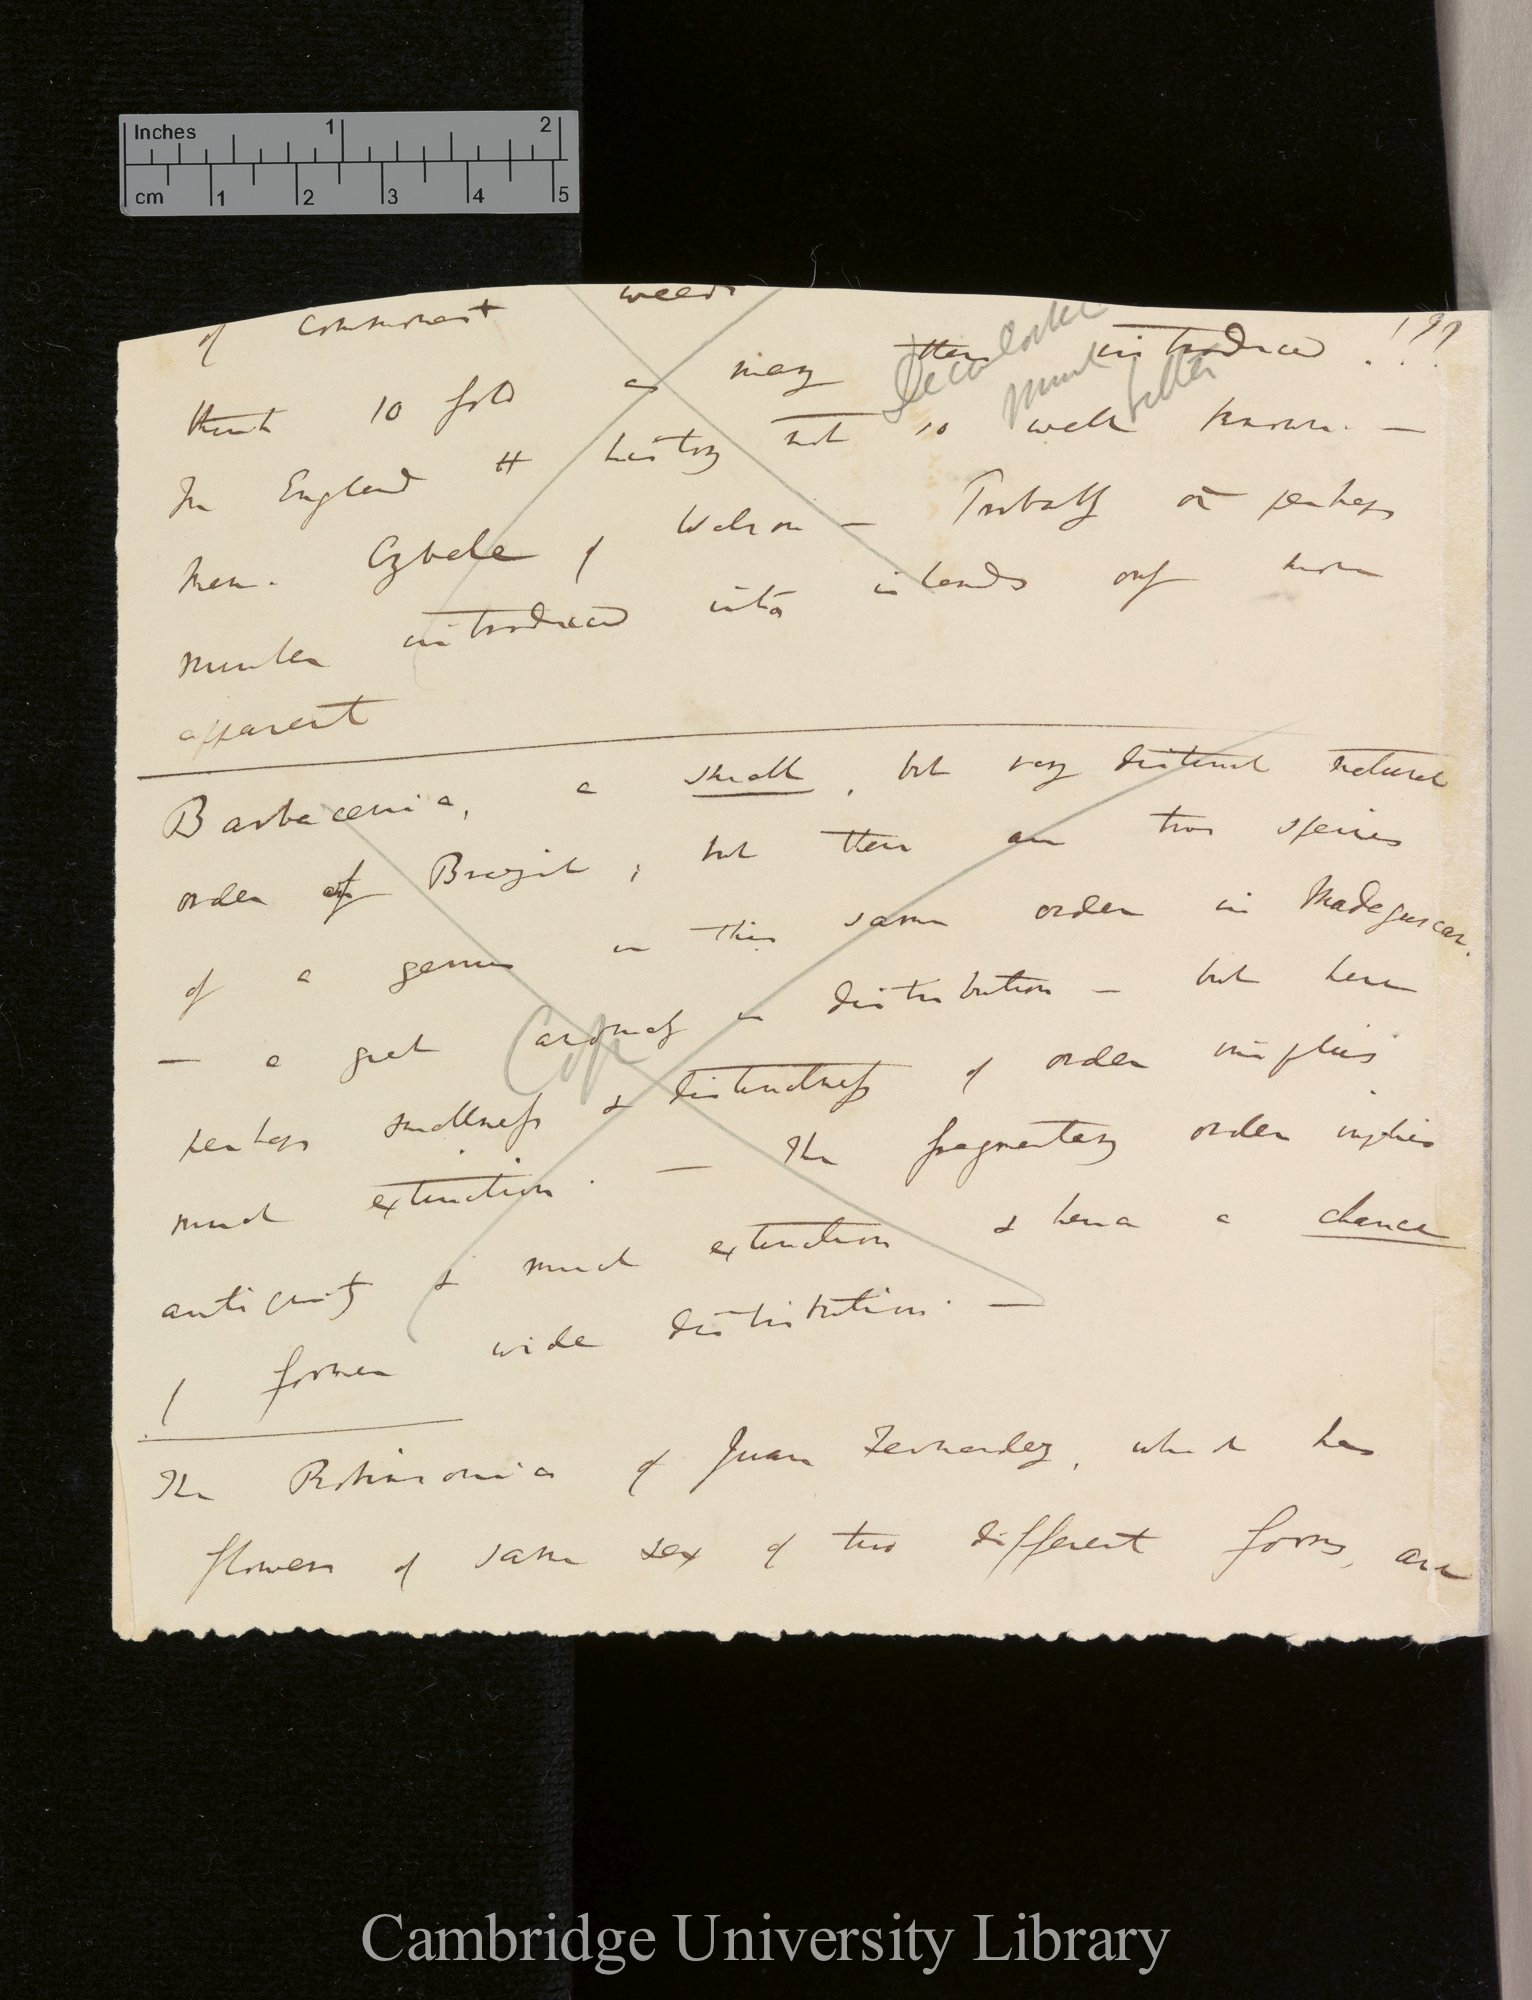 Inches 1 2
cm 1 2 3 4 5
of commonest weeds
think 10 fold as many then introduced !??
In England the history not so well known. —
Mem. Cybele of Watson — Probably on perhaps
number introduced into islands only more
apparent
Decandolle
much better
Barbacenia, a small, but very distinct natural
order of Brazil; but there are two species
of a genus in this same order in Madagascar.
— a great anomaly in distribution — but here
perhaps smallness & distinctness of order implies
much extinction. — The fragmentary order implies
antiquity & much extinction & hence a chance
of former wide distribution. —
The Robinsonia of Juan Fernandez, which has
flowers of same sex of two different forms, are
Cambridge University Library